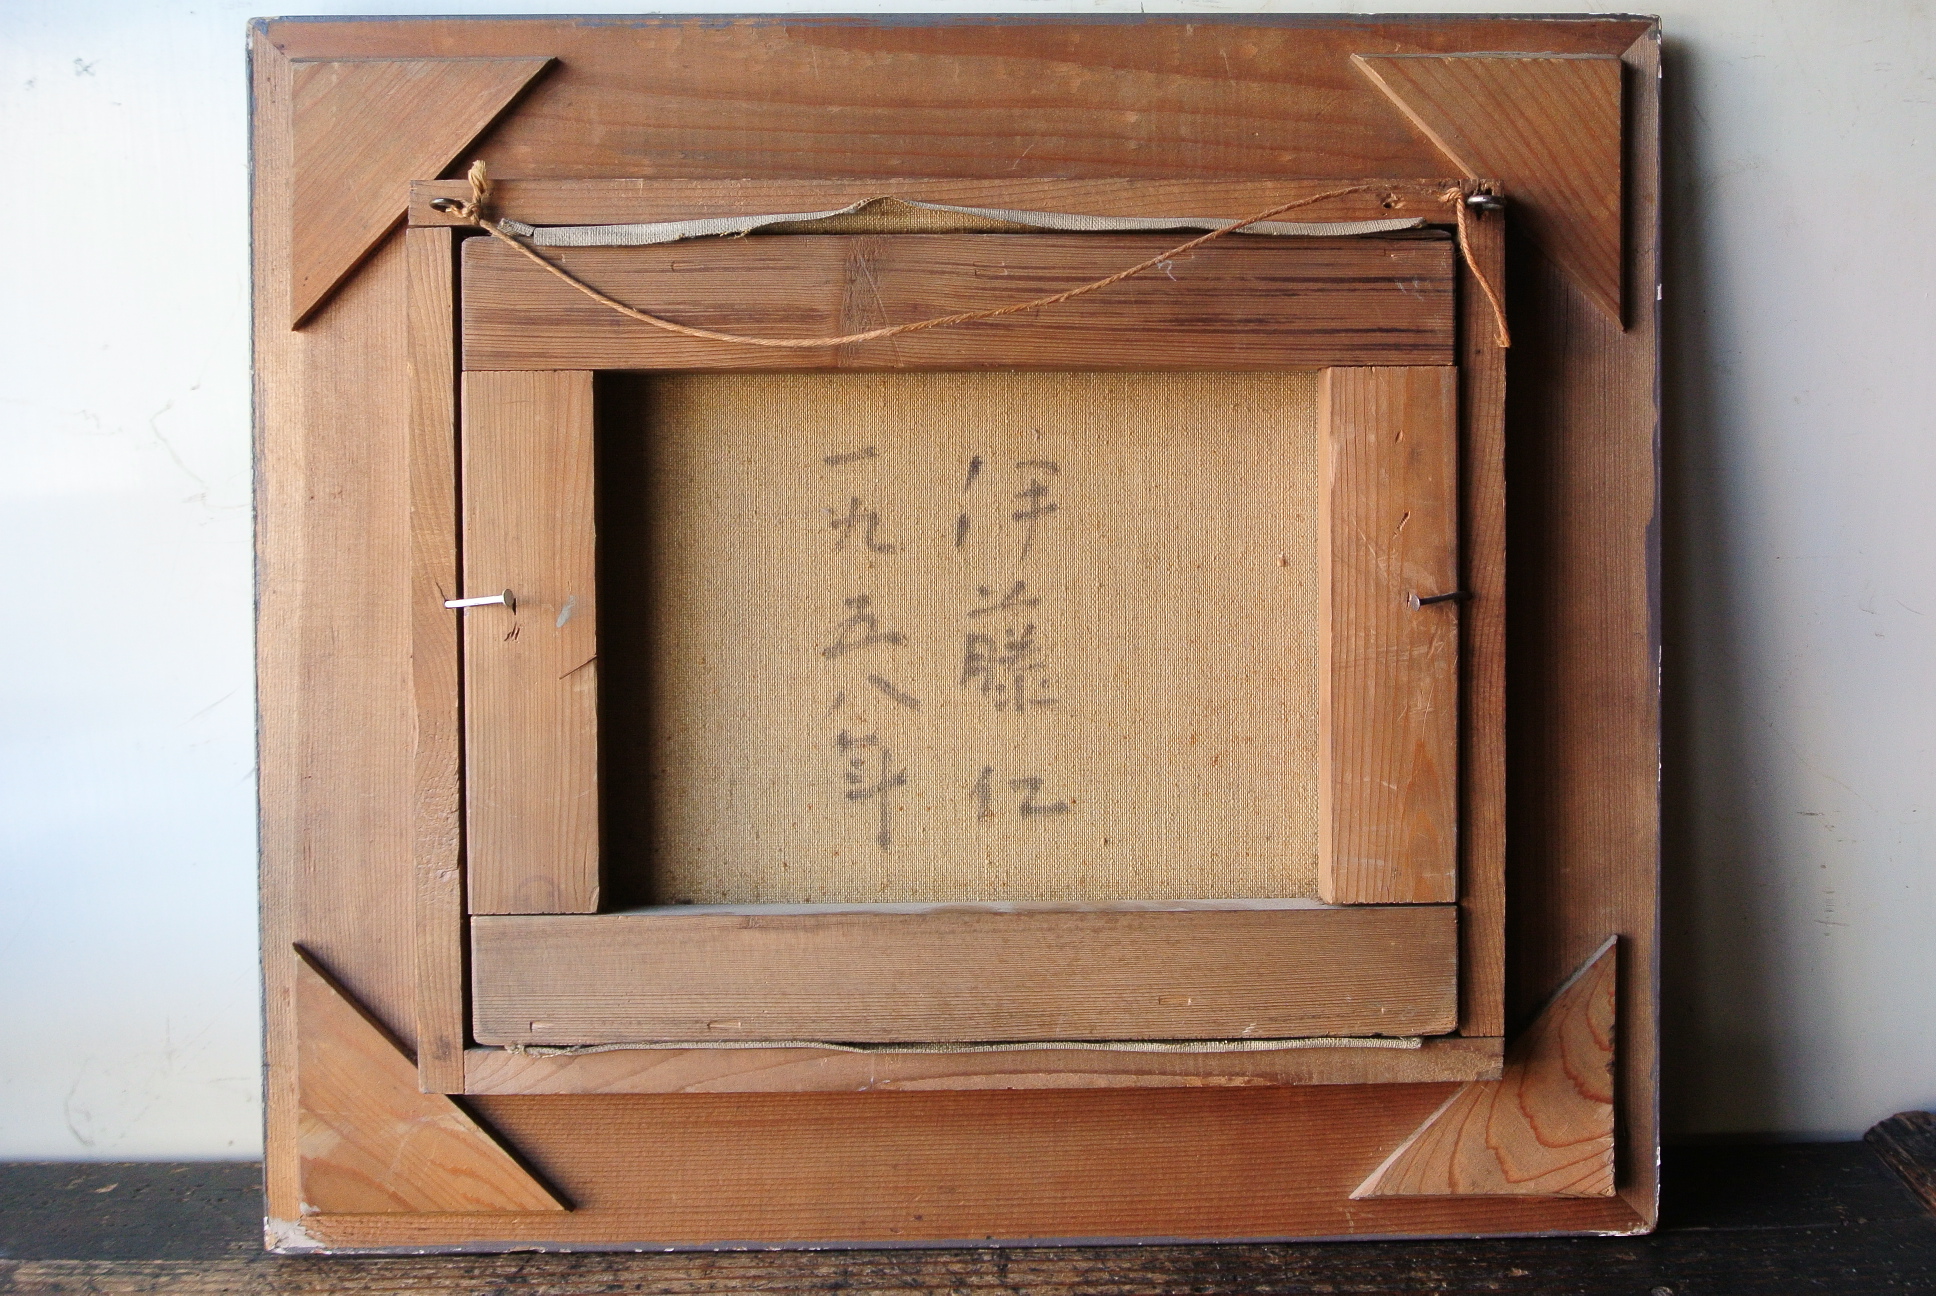 伊藤仁
一九五八年